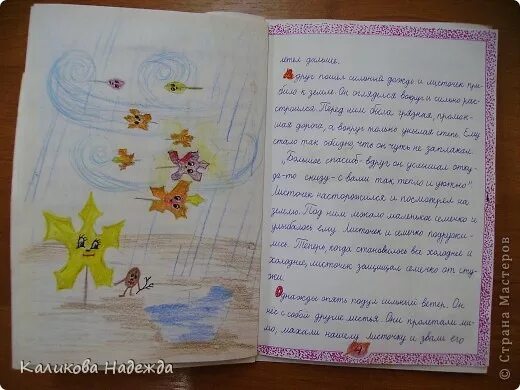 лети дальше.
Вдруг пошёл сильный дождь и листочек при-
било к земле. Он огляделся вокруг и сильно рас-
строился. Перед ним была грязная, промок-
шая дорога, а вокруг только унылая степь. Ему
стало так обидно, что он чуть не заплакал.
„Большое спасибо - вдруг он услышал отку-
да-то снизу - с вами так тепло и уютно"
Листочек насторожился и посмотрел на
землю. Под ним лежало маленькое семечко и
улыбалось ему. Листочек и семечко подружи-
лись. Теперь, когда становилось все холоднее и
холоднее, листочек защищал семечко от сту-
жи.
Однажды опять подул сильный ветер. Он
нёс с собой другие листья. Они пролетали ми-
мо, махали нашему листочку и звали его
4
Каликова Надежда
© Страна Мастеров